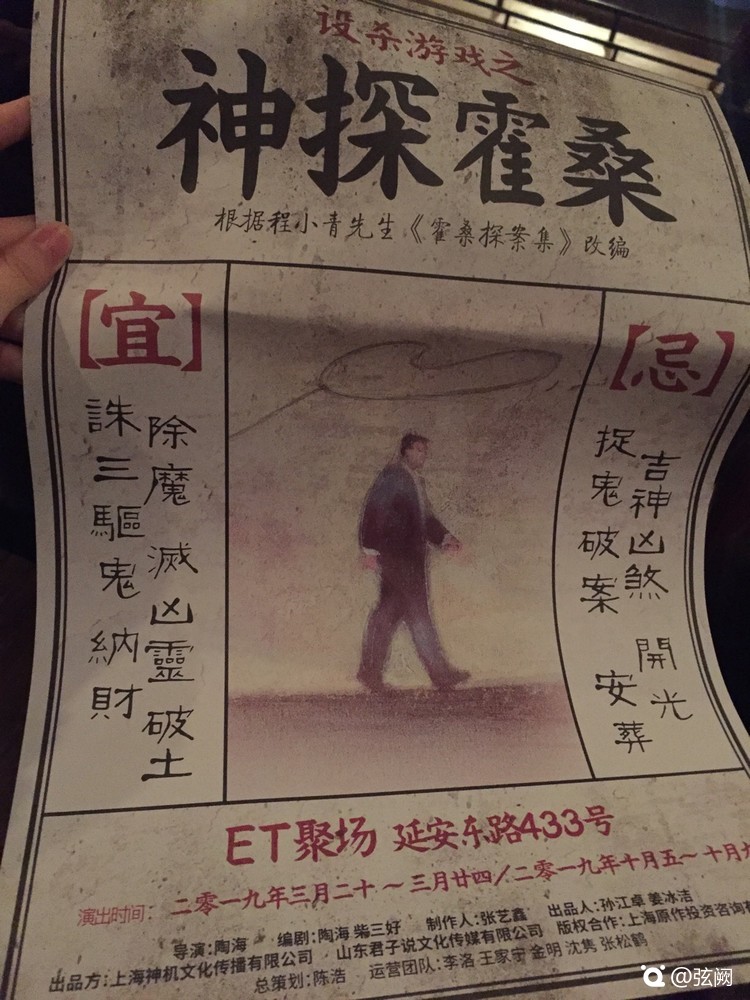 设杀游戏之
神探霍桑
根据程小青先生《霍桑探案集》改编
【宜】
除魔 滅凶靈破土
誅三驅鬼 納財
【忌】
吉神凶煞 開光
捉鬼破案 安葬
ET聚场 延安东路433号
演出时间：二零一九年三月二十～三月廿四/二零一九年十月五～十月
导演：陶海 编剧：陶海 柴三好 制作人：张艺鑫 出品人：孙江卓 姜冰洁
出品方：上海神机文化传播有限公司 山东君子说文化传媒有限公司 版权合作：上海原作投资咨询有
总策划：陈浩 运营团队：李洛 王家宇 金明 沈隽 张松鹤
@弦阙